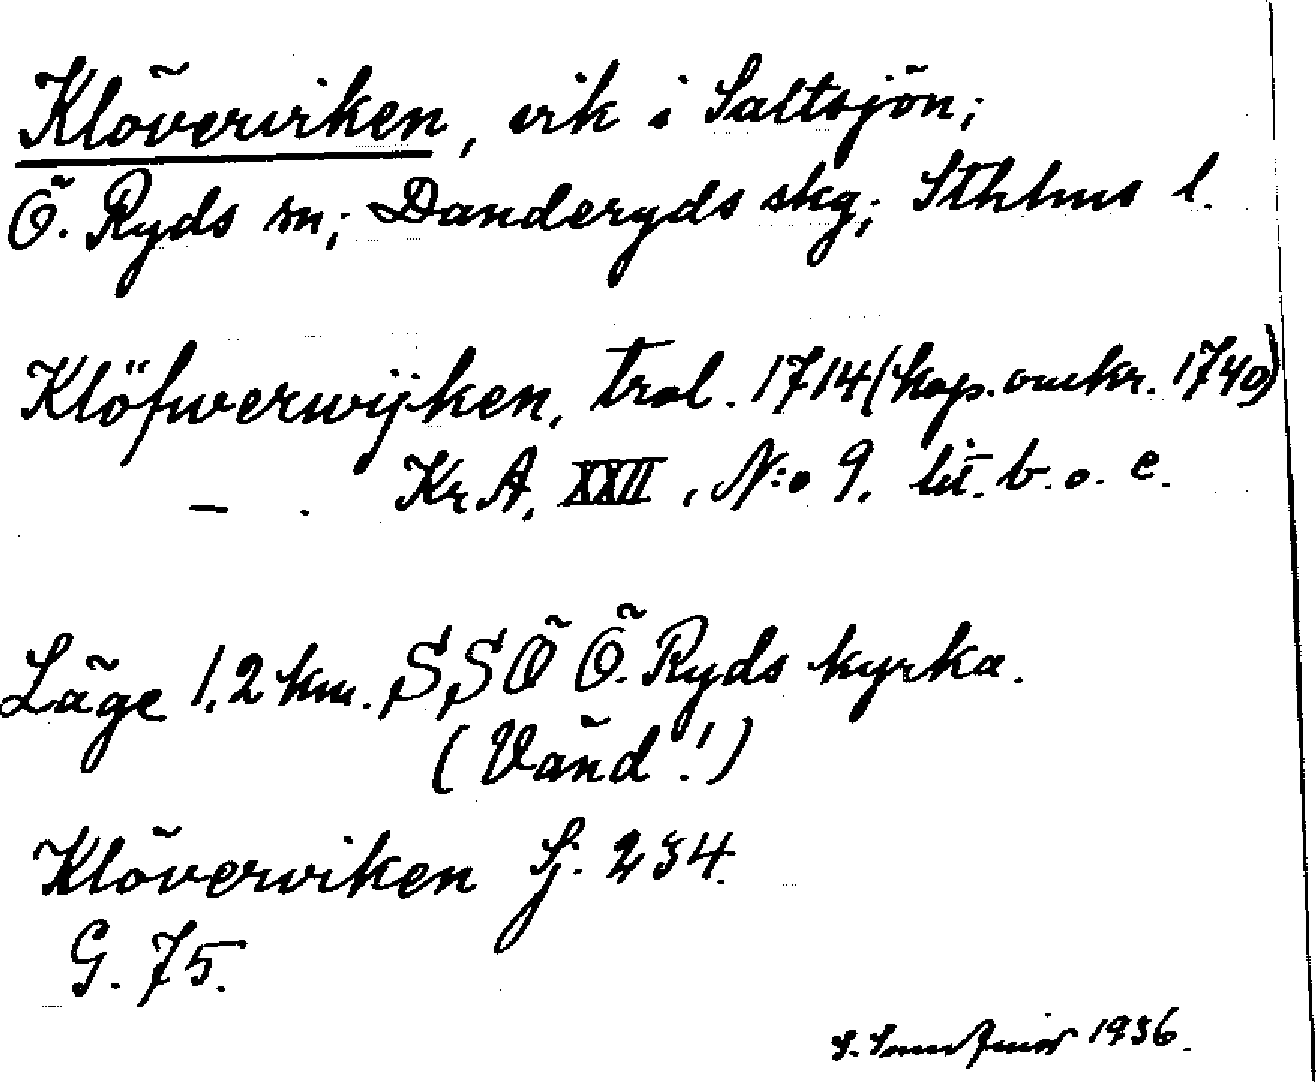 Klöverviken, vik i Saltsjön;
Ö. Ryds sn; Danderyds skg; Sthlms l.
Klöfwerwijken, trol. 1714 (kop. omkr. 1740)
— . Kr A, XXII, N:o 9, lit. b. o. c.
Läge 1,2 km. SSÖ Ö. Ryds kyrka.
(Vänd!)
Klöverviken Sj. 234.
G. 75.
S. 1936.